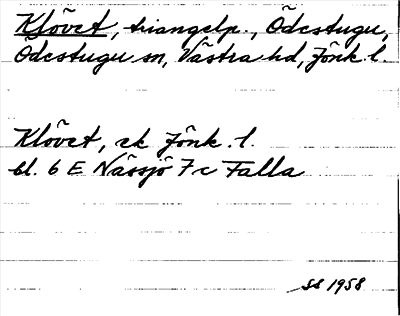 Klövet, triangelp., Ödestugu,
Ödestugu sn, Västra hd, Jönk. l.
Klövet, ek Jönk. l.
bl. 6 E Nässjö 7 c Falla
SS 1958